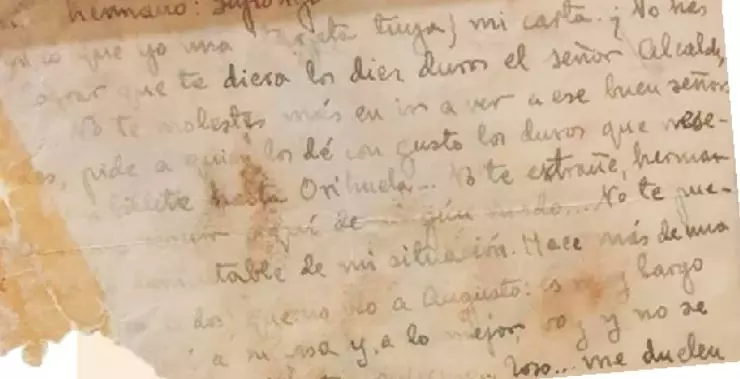 hermano: Supongo
que yo una tarjeta tuya) mi carta. ¿No has
lograr que te diera los diez duros el señor Alcalde,
No te molestes más en ir a ver a ese buen señor
pide a quien los dé con gusto los duros que nese-
billete hasta Orihuela... No te extrañe, herman
aquí de ningún modo... No te pue-
table de mi situación. Hace más de una
dos que no veo a Augusto: es muy largo
a su casa y, a lo mejor, voy y no se
me duelen